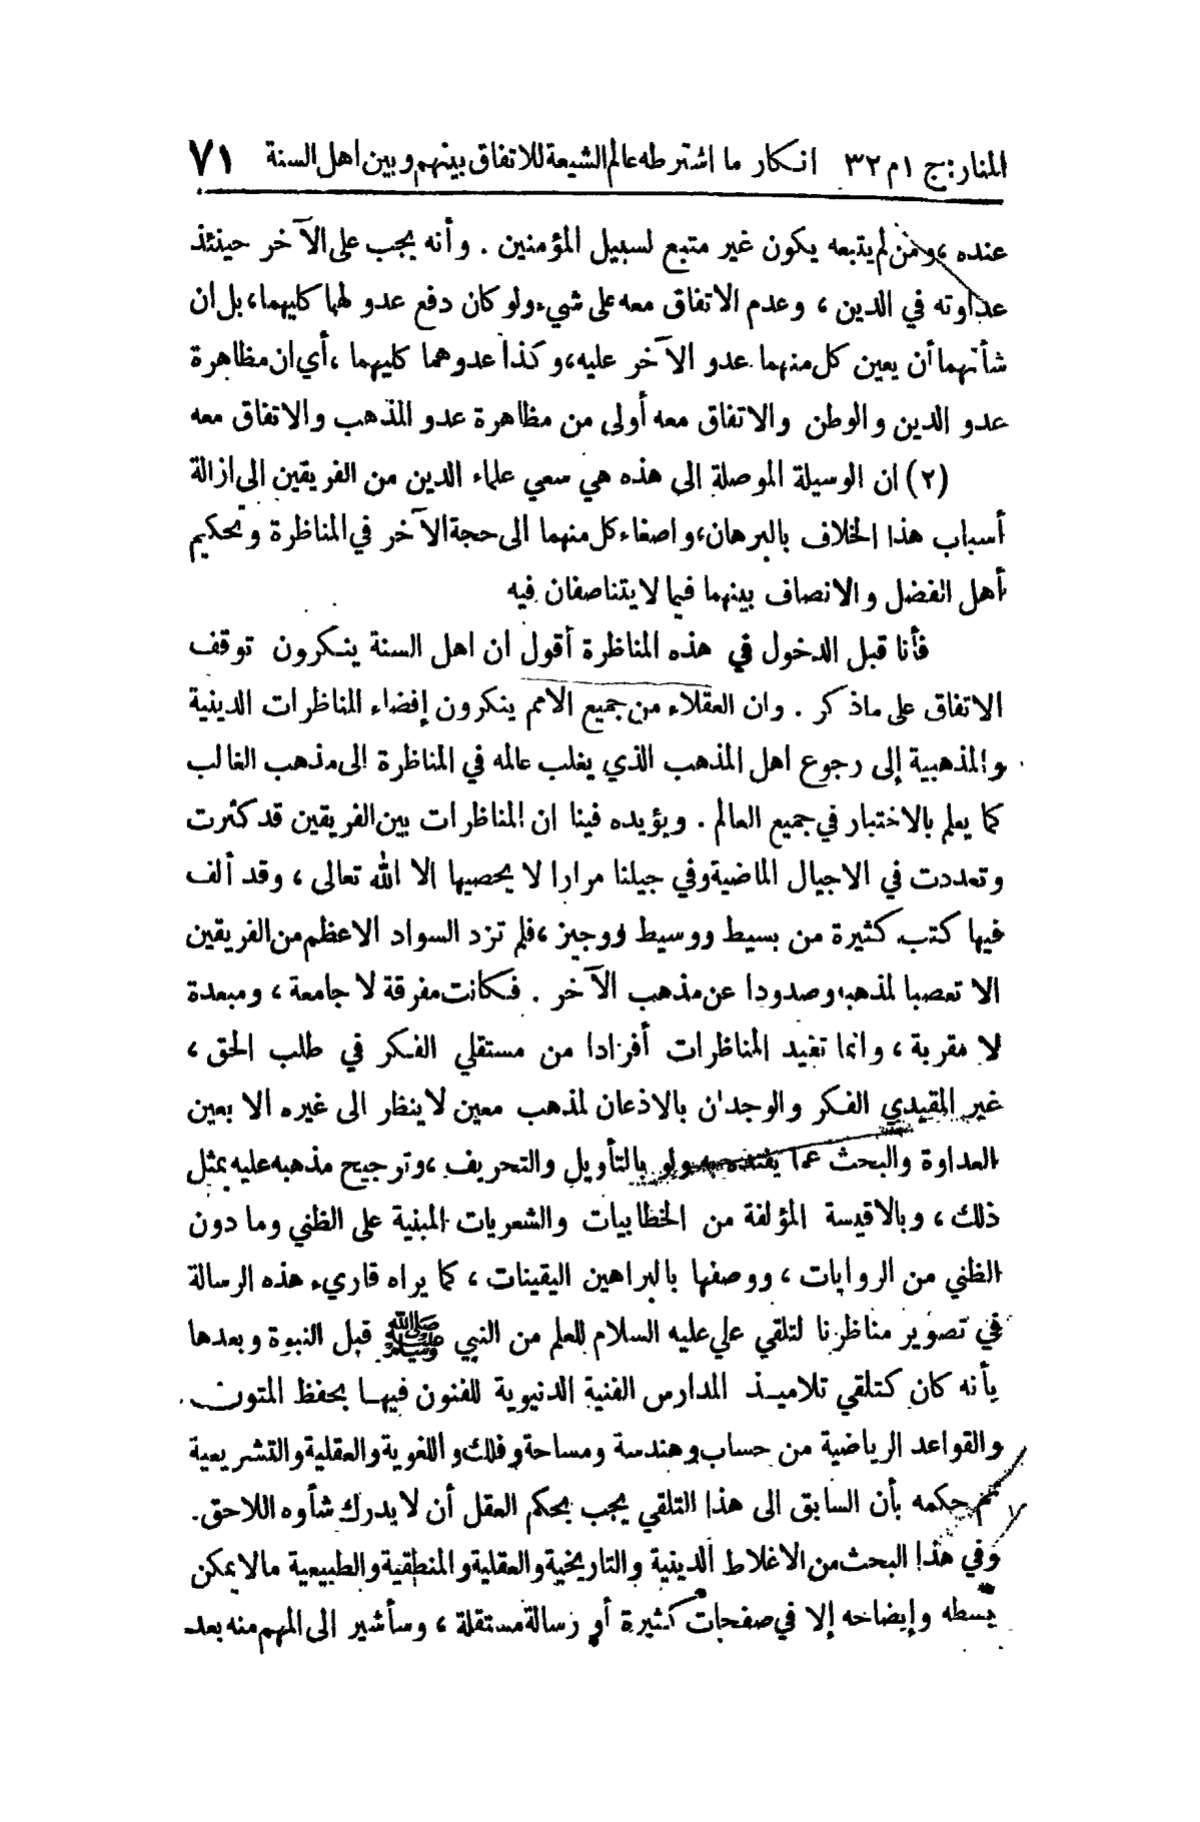 المنار: ج ١ م ٣٢ انكار ما اشترطه عالم الشيعة للاتفاق بينهم وبين اهل السنة ٧١
عنده ، ومن لم يتبعه يكون غير متبع لسبيل المؤمنين . وأنه يجب على الآخر حينئذ
عداوته في الدين ، وعدم الاتفاق معه على شيء ولو كان دفع عدو لهما كليهما ، بل ان
شأنهما أن يعين كل منهما عدو الآخر عليه ، وكذا عدوهما كليهما ، أي ان مظاهرة
عدو الدين والوطن والاتفاق معه أولى من مظاهرة عدو المذهب والاتفاق معه
(٢) ان الوسيلة الموصلة الى هذه هي سعي علماء الدين من الفريقين الى ازالة
أسباب هذا الخلاف بالبرهان ، واصغاء كل منهما الى حجة الآخر في المناظرة وتحكيم
أهل الفضل والانصاف بينهما فيما لا يتناصفان فيه
فأنا قبل الدخول في هذه المناظرة أقول ان اهل السنة ينكرون توقف
الاتفاق على ماذكر . وان العقلاء من جميع الامم ينكرون إفضاء المناظرات الدينية
والمذهبية إلى رجوع اهل المذهب الذي يغلب عالمه في المناظرة الى مذهب الغالب
كما يعلم بالاختبار في جميع العالم . ويؤيده فينا ان المناظرات بين الفريقين قد كثرت
وتعددت في الاجيال الماضية وفي جيلنا مرارا لا يحصيها الا الله تعالى ، وقد ألف
فيها كتب كثيرة من بسيط ووسيط ووجيز ، فلم تزد السواد الاعظم من الفريقين
الا تعصبا لمذهبه وصدودا عن مذهب الآخر . فكانت مفرقة لا جامعة ، ومبعدة
لا مقربة ، وانما تفيد المناظرات أفرادا من مستقلي الفكر في طلب الحق ،
غير المقيدي الفكر والوجدان بالاذعان لمذهب معين لا ينظر الى غيره الا بعين
العداوة والبحث عما ولو بالتأويل والتحريف ، وترجيح مذهبه عليه بمثل
ذلك ، وبالاقيسة المؤلفة من الخطابيات والشعريات المبنية على الظني وما دون
الظني من الروايات ، ووصفها بالبراهين اليقينات ، كما يراه قاريء هذه الرسالة
في تصوير مناظرنا لتلقي علي عليه السلام للعلم من النبي ﷺ قبل النبوة وبعدها
بأنه كان كتلقي تلاميذ المدارس الفنية الدنيوية للفنون فيها بحفظ المتون
والقواعد الرياضية من حساب وهندسة ومساحة وفلك واللغوية والعقلية والتشريعية
ثم حكمه بأن السابق الى هذا التلقي يجب بحكم العقل أن لا يدرك شأوه اللاحق .
وفي هذا البحث من الاغلاط الدينية والتاريخية والعقلية والمنطقية والطبيعية مالا يمكن
بسطه وإيضاحه إلا في صفحات كثيرة أو رسالة مستقلة ، وسأشير الى المهم منه بعد